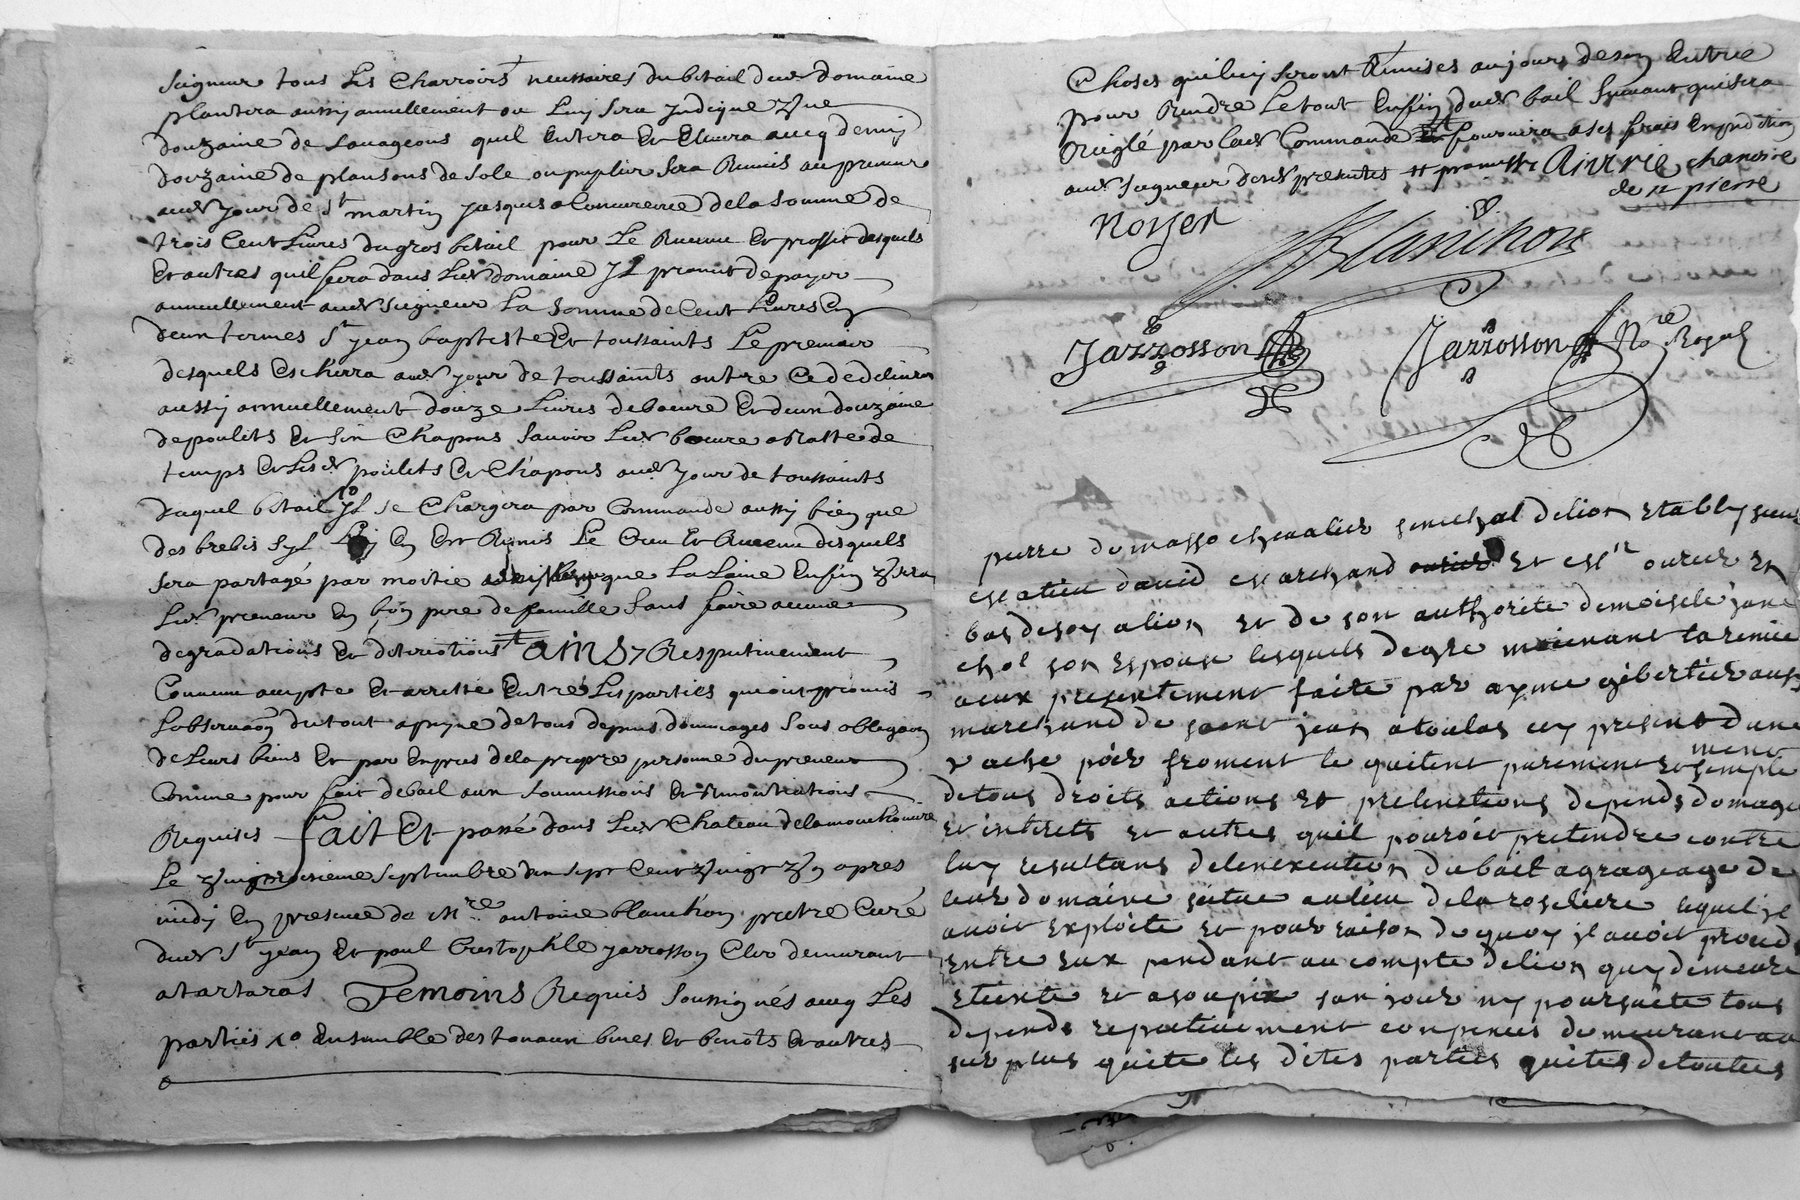 seigneur tous les charroirs necessaires du betail dudt domaine
plantera aussy annuellement ou luy sera indique une
douzaine de sauvageons quil entera et elevera avecq demy
douzaine de plansons de sole ou puplier sera remis au preneur
audt jour de st martin jusques a concurrence de la somme de
trois cent livres du gros betail pour le revenu et proffit desquels
et autres quil sera dans ledt domaine il promet de payer
annuellement audt seigneur la somme de cent livres en
deux termes st jean baptiste et toussaints le premier
desquels escherra audt jour de toussaints outre ce de delivrer
aussy annuellement douze livres de beure et deux douzaine
de poulets et six chapons savoir ledt beure a Naste de
temps et lesdt poulets et chapons audt jour de toussaints
duquel betail il se chargera par commande aussy bien que
des brebis syl luy en est remis le creu et revenu desquels
sera partagé par moitie ainsy que la laine enfin usera
ledt preneur en bon pere de famille sans faire aucune
degradations et deteriotions ainsy respectivement
convenu accepte et arresté entre les parties qui ont promis
lobservaon du tout a peyne de tous depens dommages sous obligaon
de leurs biens et par expres de la propre personne du preneur
comme pour fait de bail aux soumissions et renontiations
requises fait et passé dans ledt chateau de la mouchonniere
le vingtroisieme septembre dix sept cent vingt un apres
midy en presence de mre antoine blanchon pretre curé
dudt st jean et paul cristophle jarrosson clerc demurant
a tartaras temoins requis soussignés avecq les
parties no ensemble des tonaux benes et benots et autres
choses qui luy seront remises au jour de son entrée
pour rendre le tout en fin dudt bail suivant qui sera
reiglé par ladt commande et fournira a ses frais expedition
audt seigneur desdt presentes Rivrie chanoine
de st pierre
Noyer
Blanchon
Jarrosson
Jarrosson Nore Royal
pierre de masso chevalier senechal de lion etably sieur
matieu david marchand et mtre ourier en
bas de soy a lion et de son authorite demoiselle jane
chol son espouse lesquels de gre moienant la remise
a eux presentement faite par ayme gibertier aussy
marchand de saint jean a toulas cy present dune
vache poil froment le quitent purement et simple
ment
de tous droits actions et pretenctions depends domage
et interets et autres quil pouroit pretendre contre
luy resultans de linexecution du bail a grageage de
leur domaine situe au lieu de la roseliere lequel il
avoit exploite et pour raison de quoy il avoit procedz
entre eux pendant au compte de lion quy demeure
eteinte et asoupie san jour ny poursuite tous
depends repectivement conpences demeurant au
sur plus quite les dites parties quites de toutes